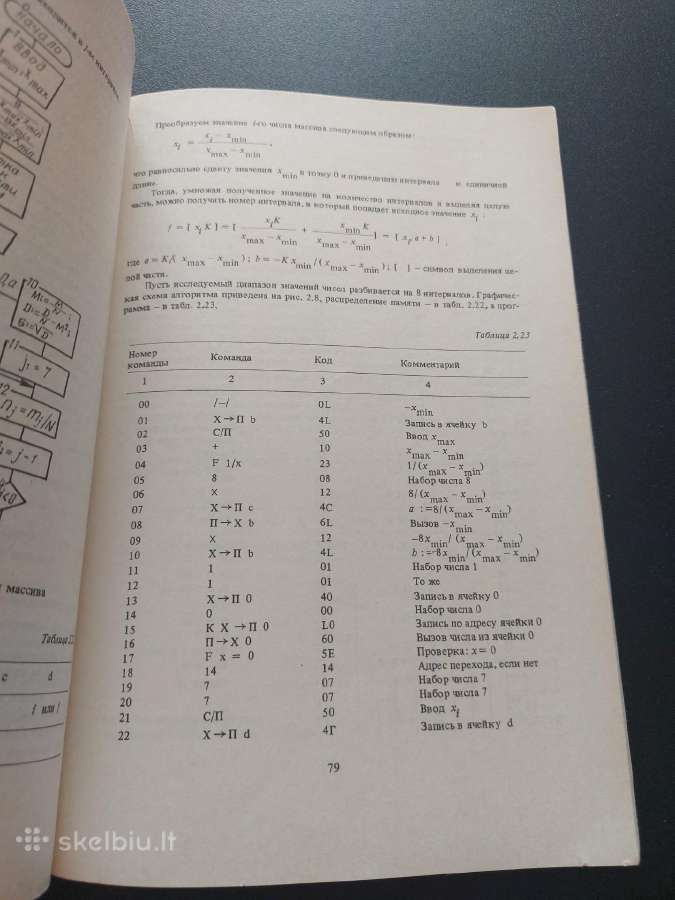 0
начало
1
ВВОД
x max
10
Да
11
j₁ = 7
12
Пj = mj/N
j-1
массива
Таблица
c d
i или j
Преобразуем значение i-го числа массива следующим образом:
x_i = (x_i − x_min) / (x_max − x_min) ,
что равносильно сдвигу значения x_min в точку 0 и приведению интервала к единичной
длине.
Тогда, умножая полученное значение на количество интервалов и выделяя целую
часть, можно получить номер интервала, в который попадает исходное значение x_i :
j = [ x_i K ] = [ x_i K / (x_max − x_min) + x_min K / (x_max − x_min) ] = [ x_i a + b ] ,
где a = K/( x_max − x_min ) ; b = −K x_min /( x_max − x_min ) ; [ ] − символ выделения це-
лой части.
Пусть исследуемый диапазон значений чисел разбивается на 8 интервалов. Графичес-
кая схема алгоритма приведена на рис. 2.8, распределение памяти − в табл. 2.22, а прог-
рамма − в табл. 2.23.
Таблица 2.23
Номер команды Команда Код Комментарий
1 2 3 4
00 /−/ 0L −x_min
01 X→П b 4L Запись в ячейку b
02 С/П 50 Ввод x_max
03 + 10 x_max − x_min
04 F 1/x 23 1/(x_max − x_min)
05 8 08 Набор числа 8
06 x 12 8/(x_max − x_min)
07 X→П c 4C a :=8/(x_max − x_min)
08 П→X b 6L Вызов −x_min
09 x 12 −8x_min/ (x_max − x_min)
10 X→П b 4L b :=-8x_min/(x_max − x_min)
11 1 01 Набор числа 1
12 1 01 То же
13 X→П 0 40 Запись в ячейку 0
14 0 00 Набор числа 0
15 К X→П 0 L0 Запись по адресу ячейки 0
16 П→X 0 60 Вызов числа из ячейки 0
17 F x = 0 5E Проверка: x = 0
18 14 14 Адрес перехода, если нет
19 7 07 Набор числа 7
20 7 07 Набор числа 7
21 С/П 50 Ввод x_i
22 X→П d 4Г Запись в ячейку d
79
skelbiu.lt